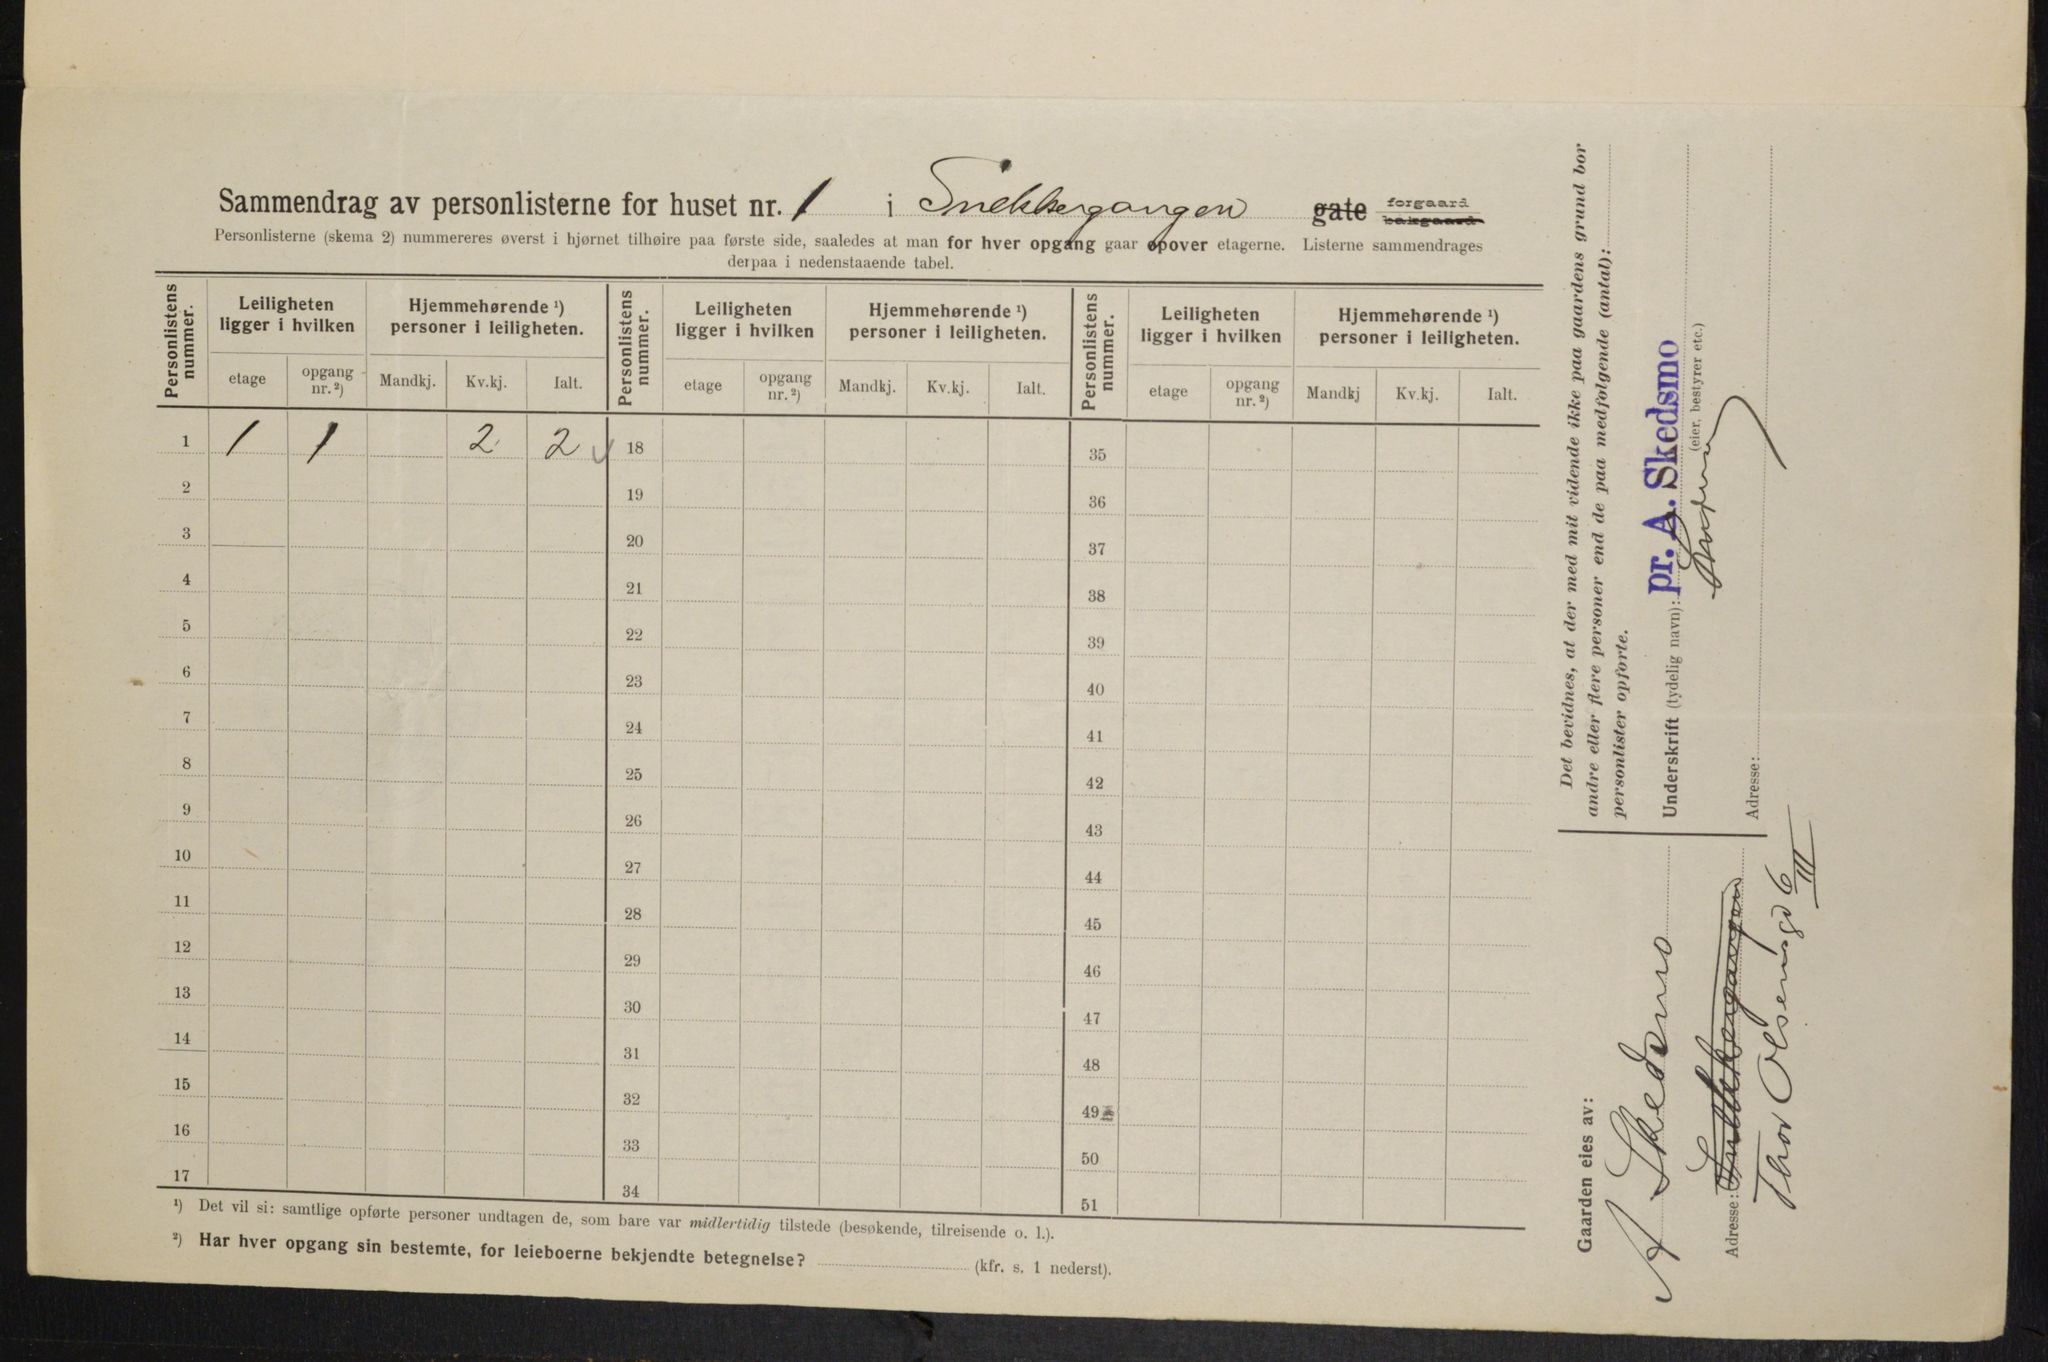 Sammendrag av personlisterne for huset nr. 1 i Snekkergangen gate forgaard
bakgaard
Personlisterne (skema 2) nummereres øverst i hjørnet tilhøire paa første side, saaledes at man for hver opgang gaar opover etagerne. Listerne sammendrages
derpaa i nedenstaaende tabel.
Personlistens nummer. Leiligheten ligger i hvilken Hjemmehørende ¹) personer i leiligheten. Personlistens nummer. Leiligheten ligger i hvilken Hjemmehørende ¹) personer i leiligheten. Personlistens nummer. Leiligheten ligger i hvilken Hjemmehørende ¹) personer i leiligheten.
etage opgang nr.²) Mandkj. Kv.kj. Ialt. etage opgang nr.²) Mandkj. Kv.kj. Ialt. etage opgang nr.²) Mandkj Kv.kj. Ialt.
1 1 1 2 2 18 35
2 19 36
3 20 37
4 21 38
5 22 39
6 23 40
7 24 41
8 25 42
9 26 43
10 27 44
11 28 45
12 29 46
13 30 47
14 31 48
15 32 49
16 33 50
17 34 51
¹) Det vil si: samtlige opførte personer undtagen de, som bare var midlertidig tilstede (besøkende, tilreisende o. l.).
²) Har hver opgang sin bestemte, for leieboerne bekjendte betegnelse? (kfr. s. 1 nederst).
Det bevidnes, at der med mit vidende ikke paa gaardens grund bor
andre eller flere personer end de paa medfølgende (antal):
personlister opførte.
Underskrift (tydelig navn): pr. A. Skedsmo
(eier, bestyrer etc.)
Adresse:
Gaarden eies av:
A Skedsmo
Adresse: Snekkergangen
Thor Olsensgd 6
III